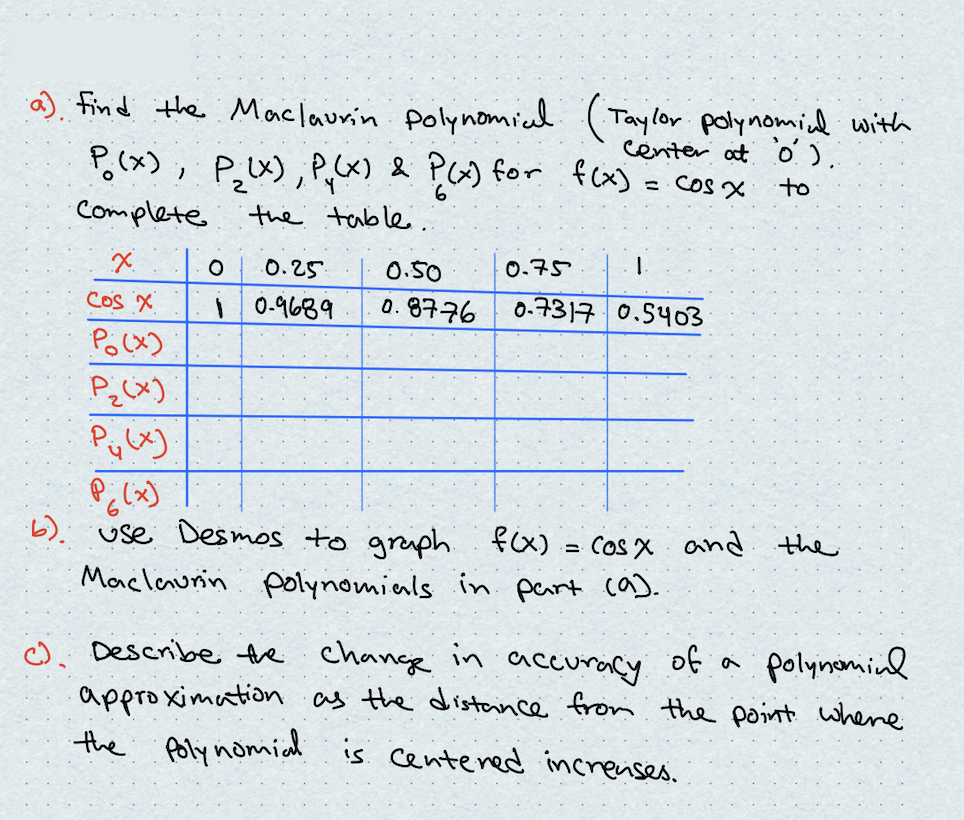 a). Find the Maclaurin polynomial (Taylor polynomial with
center at '0').
P₀(x), P₂(x), P₄(x) & P₆(x) for f(x) = cos x to
complete the table.
x 0 0.25 0.50 0.75 1
cos x 1 0.9689 0.8776 0.7317 0.5403
P₀(x)
P₂(x)
P₄(x)
P₆(x)
b). use Desmos to graph f(x) = cos x and the
Maclaurin polynomials in part (a).
c). Describe the change in accuracy of a polynomial
approximation as the distance from the point where
the polynomial is centered increases.